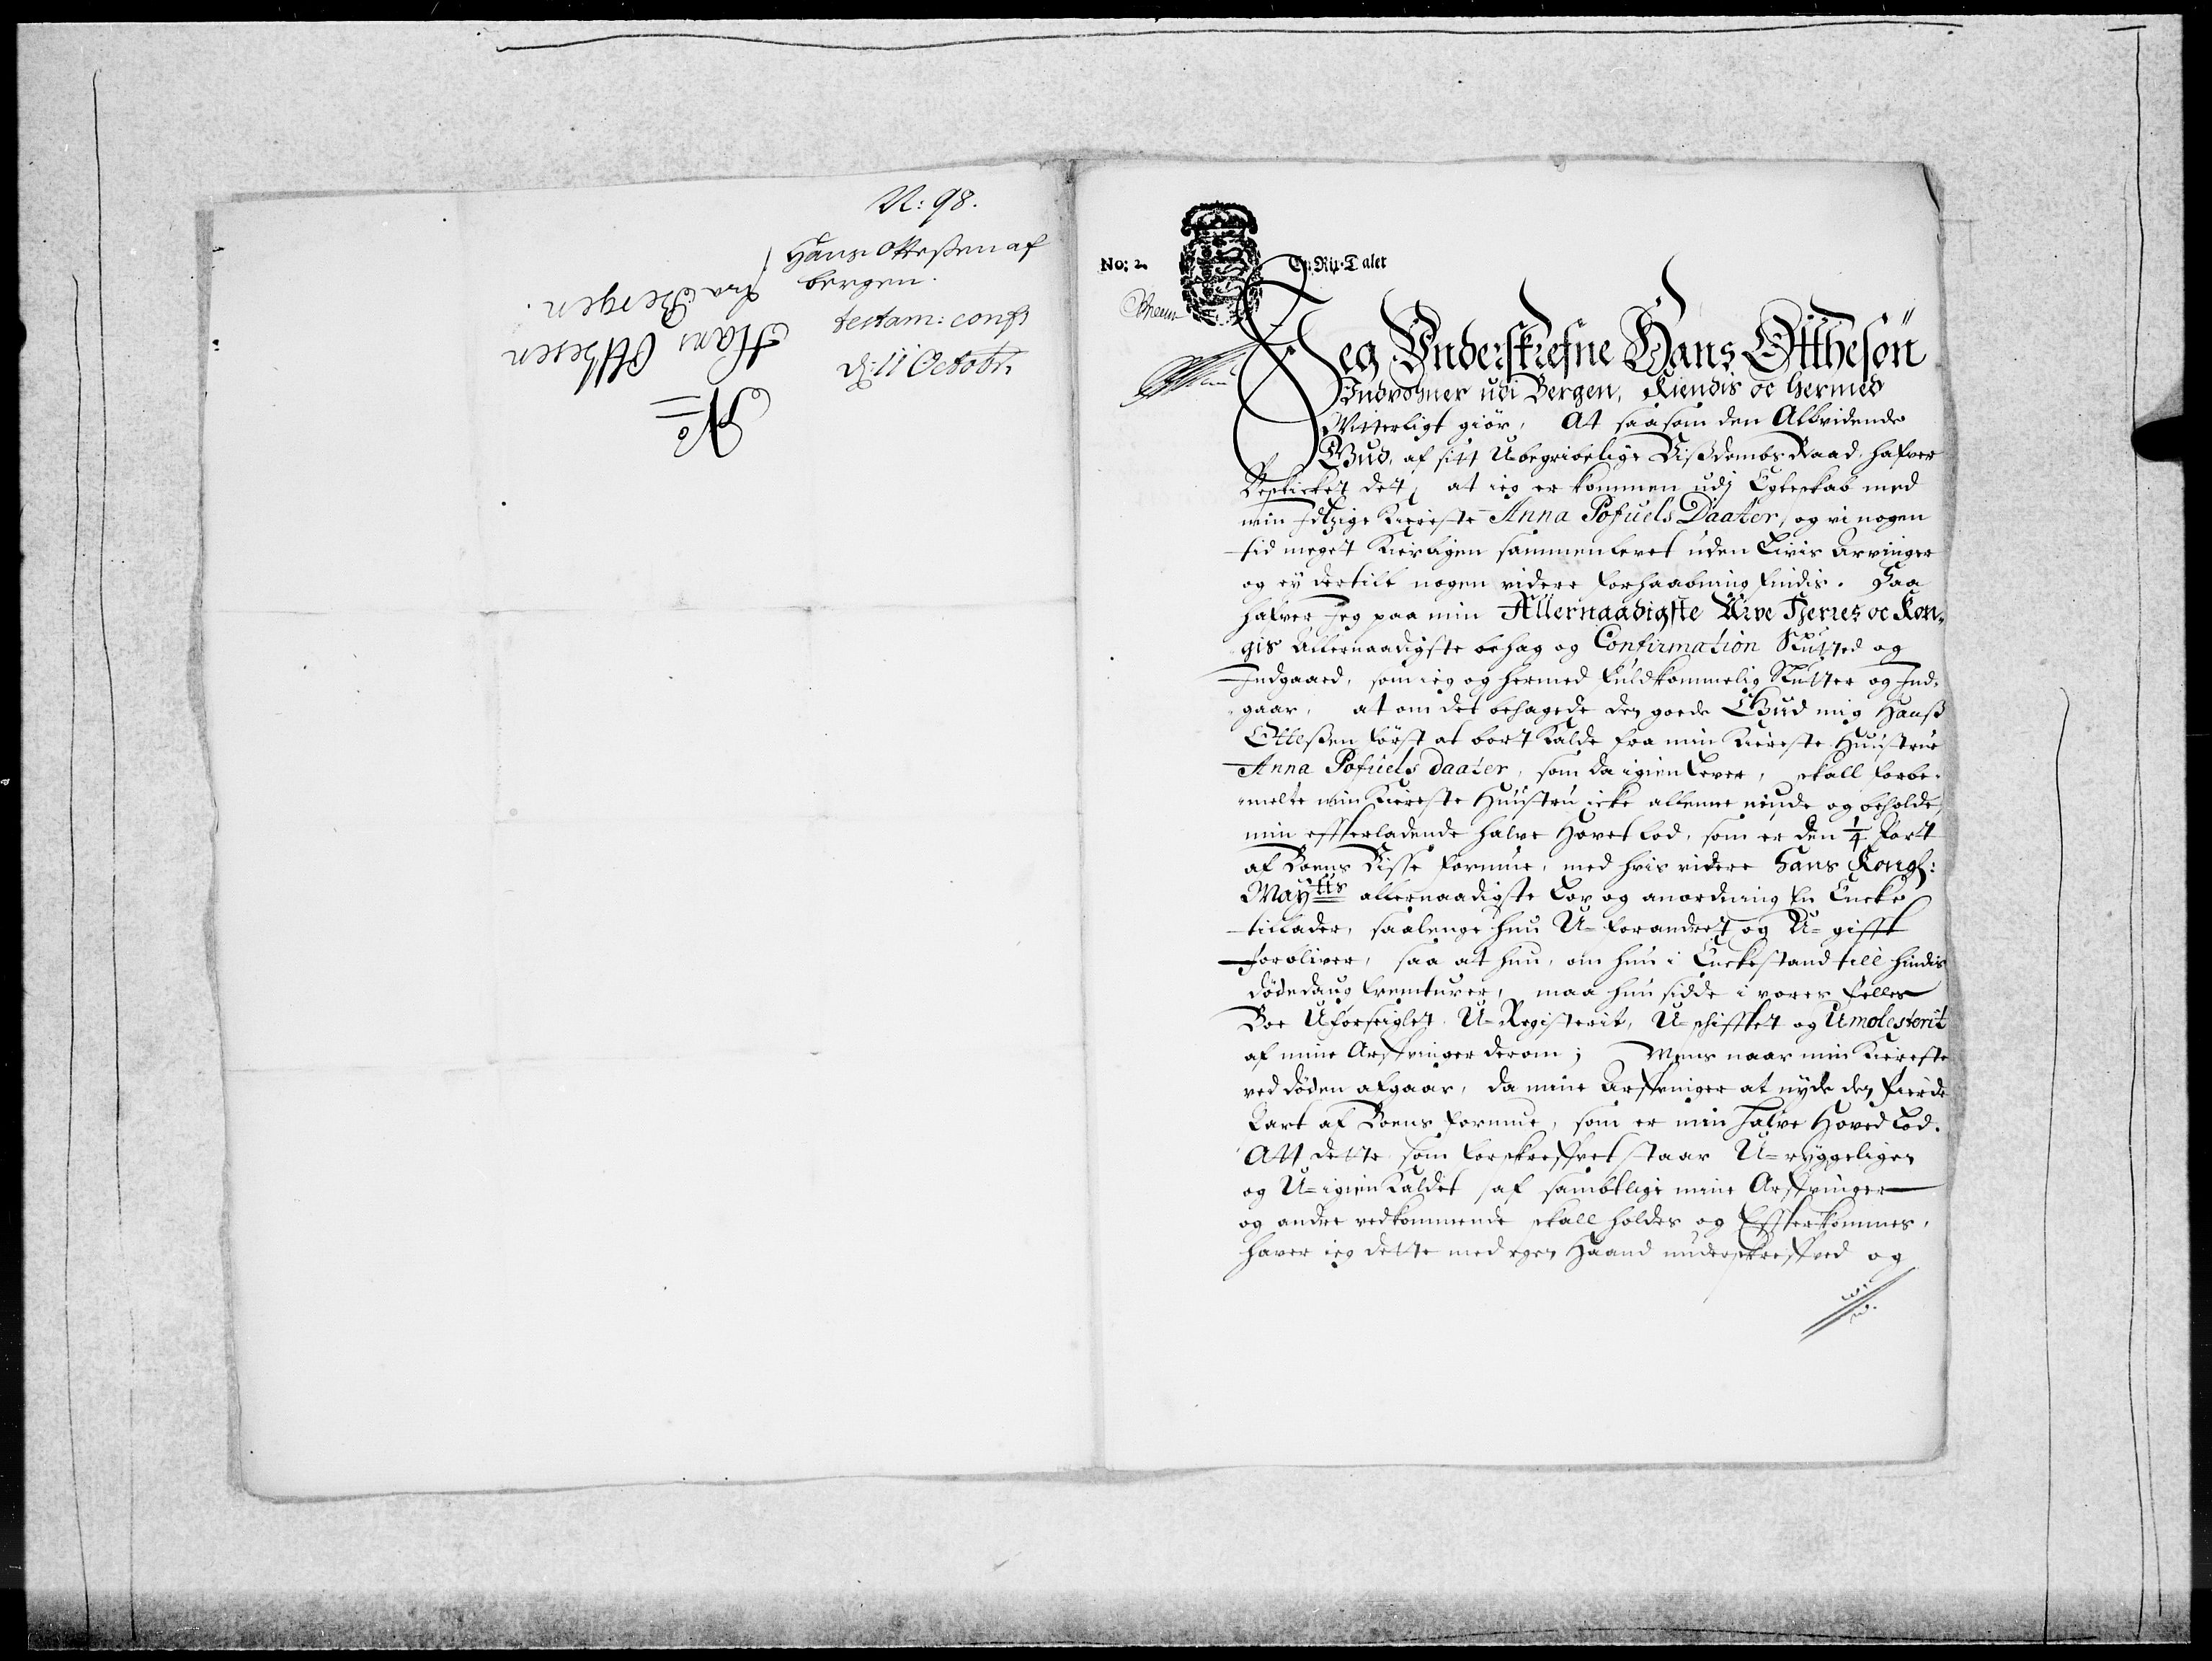 N: 98.
Hans Otteßen af
bergen.
testam: conf:
d: 11 Octobr.
No
Hans Otthesen
fra Bergen.
No: 2. En Rix-Daler
Jeg Underskrefne Hans Ottheson
Indvohner udi Bergen, Kiendis oc hermed
Witterligt giör, At saasom den Alvidende
Gud, af sitt Ubegribelige Vißdombs Raad, hafver
Beskicket det, at ieg er kommen udj Egteskab med
min Kiereste Anna Pofuels Daater, og vi nogen
tid meget Kierligen sammenlevet uden Livis Arvinger
og ey dertill nogen videre forhaabning findis. Saa
hafver Jeg paa min Allernaadigste Arve Herres oc Kon-
gis Allernaadigste behag og Confirmation Slutted og
Indgaaed, som ieg og hermed fuldkommelig Slutter og Ind-
gaar, at om det behagede den goede Gud mig Hanß
Otteßen först at bort Kalde fra min Kiereste Huustrue
Anna Pofuels Daater, som da igien lever, skall forbe-
melte min Kiereste Huustru icke allene niude og beholde
min effterladende halve Hovet lod, som er den 1/4 Part
af Boens Visse formue, med hvis videre Hans Kongl:
Maytts allernaadigste Lov og anordning En Encke
tillader, saalenge hun U-forandret og U-gifft
forbliver, saa at hun, om hun i Enckestand till hindis
dödedaug fremturer, maa hun sidde i vores felles
Boe Uforseiglet, U-Registerit, U-schifftet og Umolesterit
af mine Arffvinger derom; Mens naar min Kiereste
ved döden afgaar, da mine Arffvinger at nyde den fierde
Part af Boens formue, som er min halve Hoved lod.
Att dette som forskreffvet staar U-ryggeligen
og U-igienkaldet af sambtlige mine Arffvinger
og andre vedkommende skall holdes og Effterkommes,
haver ieg dette med egen Haand underskreffved og